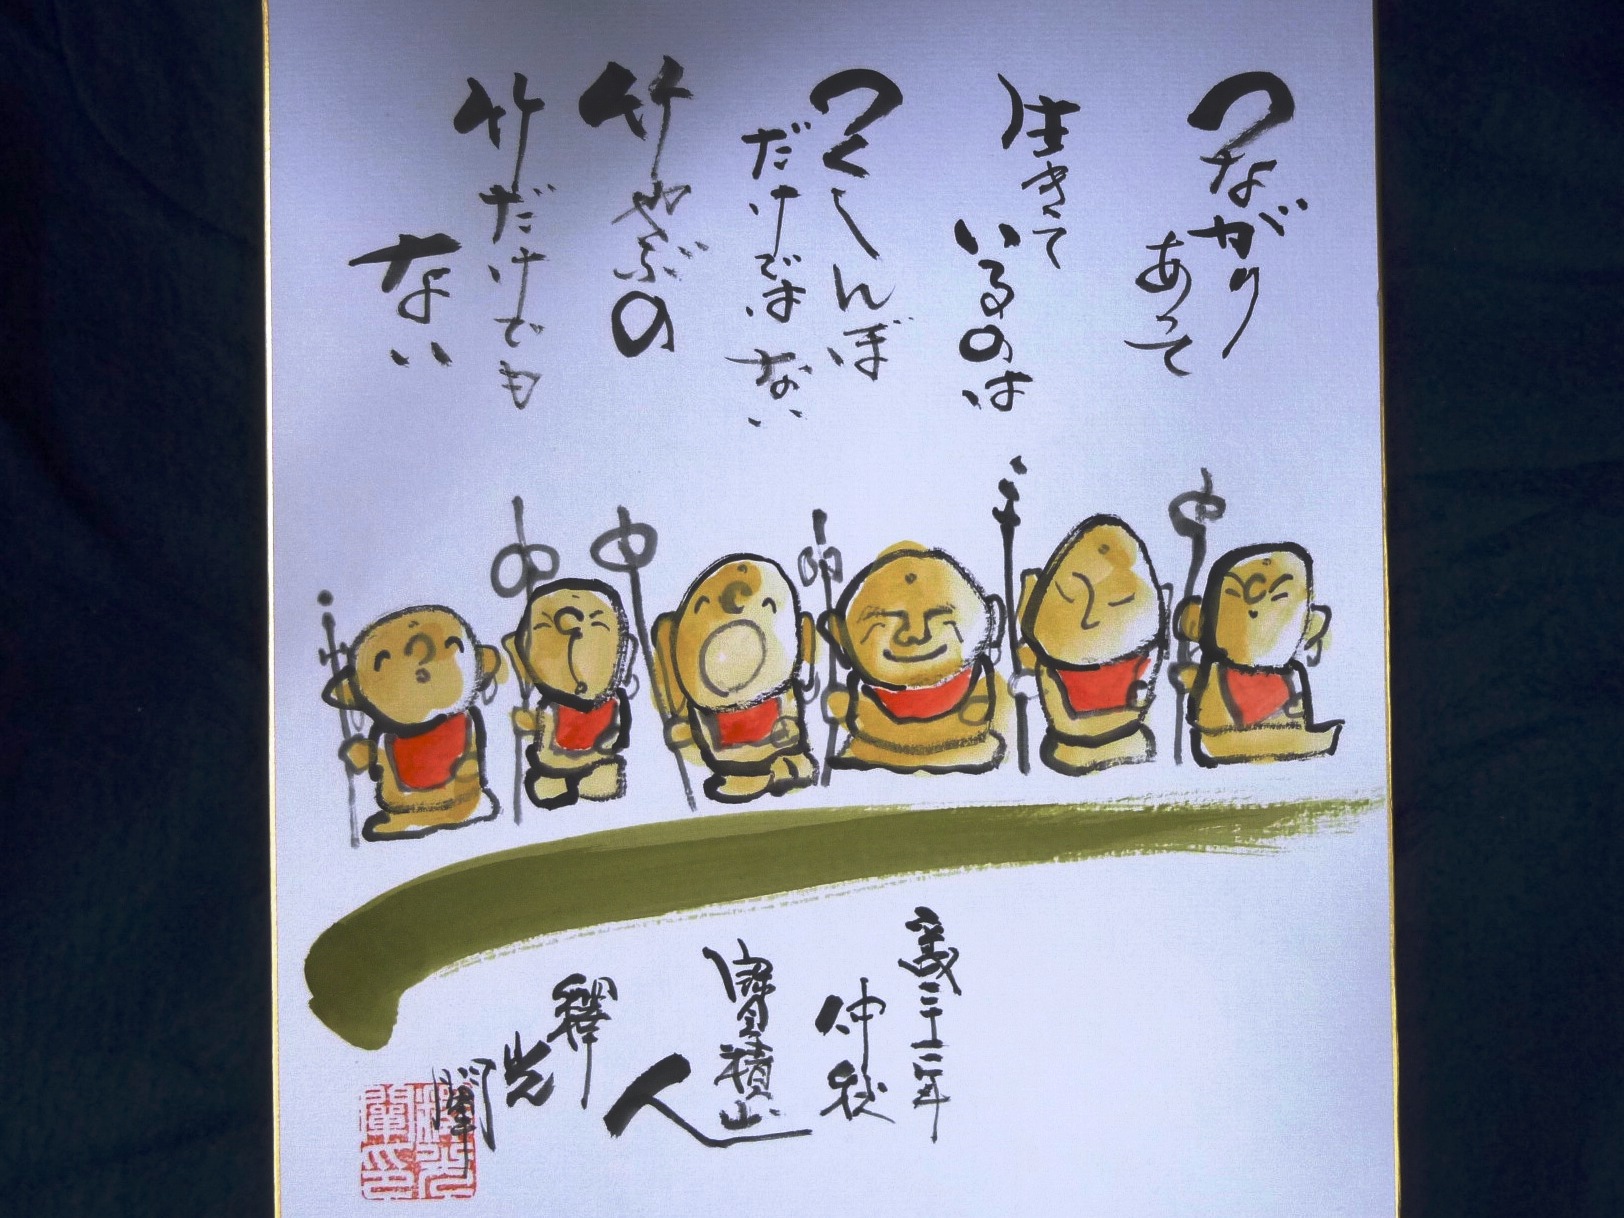 つながり
あって
生きて
いるのは
つくしんぼ
だけではない
竹やぶの
竹だけでも
ない
歳二十二年
仲秋
寳積山
人
釋
光
闡